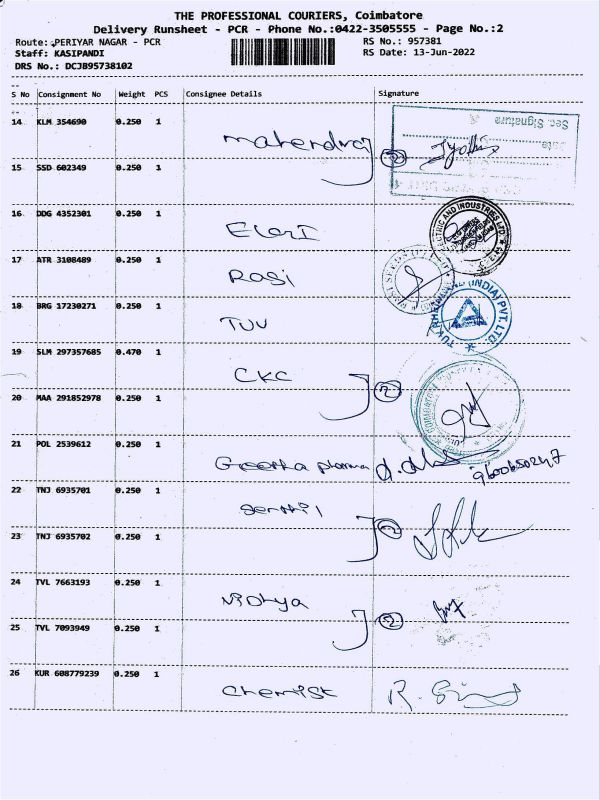 THE PROFESSIONAL COURIERS, Coimbatore
Delivery Runsheet - PCR - Phone No.:0422-3505555 - Page No.:2
Route: PERIYAR NAGAR - PCR RS No.: 957381
Staff: KASIPANDI RS Date: 13-Jun-2022
DRS No.: DCJB95738102
S No Consignment No Weight PCS Consignee Details Signature
14 KLM 354690 0.250 1 Mahendiraj
15 SSD 602349 0.250 1 2
16 DDG 4352301 0.250 1 ELGI
17 ATR 3108489 0.250 1 RASI
18 BRG 17230271 0.250 1 TUV
19 SLM 297357685 0.470 1 CKC
20 MAA 291852978 0.250 1 2
21 POL 2539612 0.250 1 Geetha pharma 9600650247
22 TNJ 6935701 0.250 1 Senthil
23 TNJ 6935702 0.250 1 2
24 TVL 7663193 0.250 1 Nidhya
25 TVL 7093949 0.250 1 2
26 KUR 608779239 0.250 1 Chemist